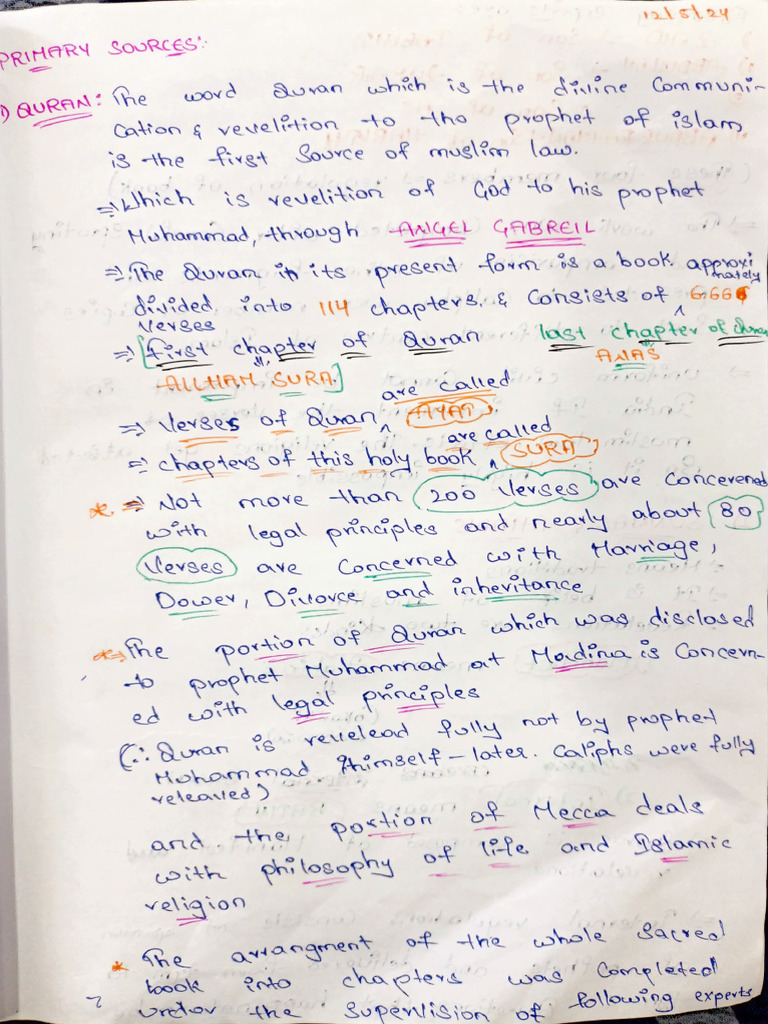 12/5/24
PRIMARY SOURCES:
1) QURAN: The word Quran which is the divine Communi-
cation & revelition to tho prophet of islam
is the first Source of muslim law.
⇒ Which is revelition of God to his prophet
Muhammad, through ANGEL GABREIL
⇒ The Quran in its present form is a book approxi
mately
divided into 114 chapters. & Consists of 6666
verses
⇒ [first chapter of Quran last chapter of Quran
ALLHAM SURA.] ANAS
are called
⇒ Verses of Quran ^ AYAT
are called
⇒ chapters of this holy book ^ SURA
* ⇒ Not more than 200 Verses are Concerened
with legal principles and nearly about 80
Verses are Concerned with Marriage,
Dower, Divorce and inheritance
*⇒ The portion of Quran which was disclosed
to prophet Muhammad at Madina is Concern-
ed with legal principles
(∴ Quran is revelead fully not by prophet
Muhammad himself - later. Caliphs were fully
released)
and the portion of Mecca deals
with philosophy of life and Islamic
religion
* The arrangment of the whole Sacred
book into chapters was Completed
under the Supervision of following experts